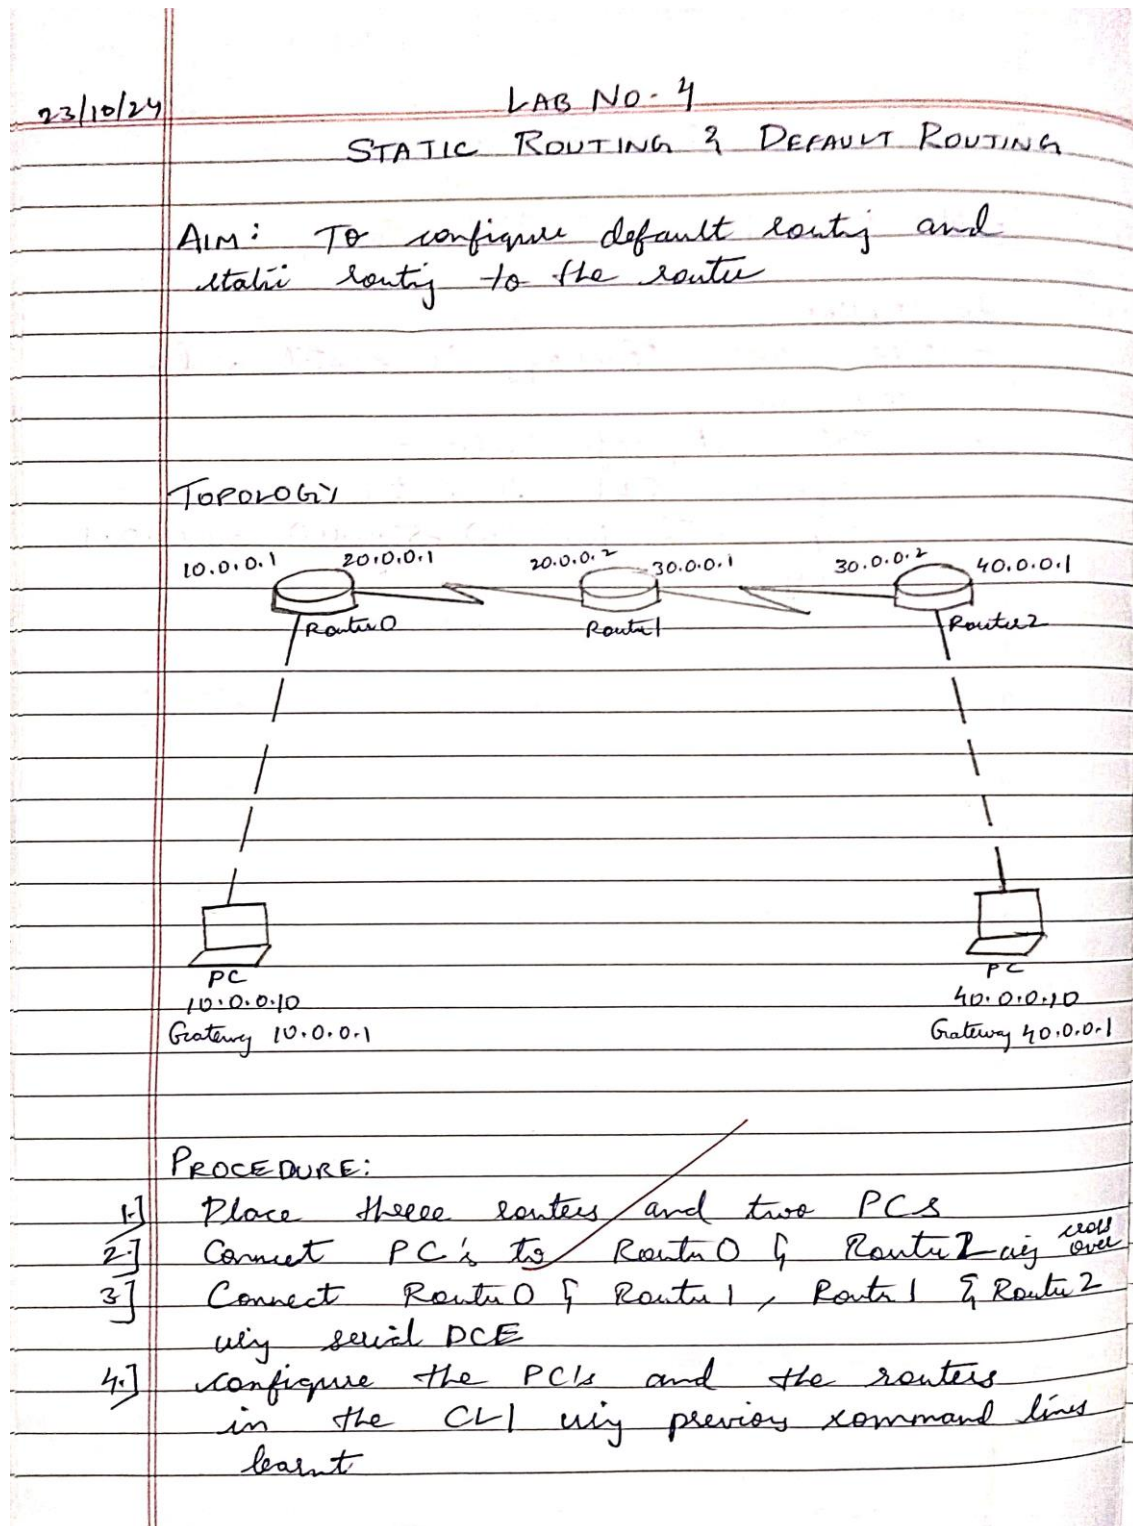 23/10/24
LAB NO. 4
STATIC ROUTING & DEFAULT ROUTING
AIM: To configure default routing and
static routing to the router
TOPOLOGY
10.0.0.1 20.0.0.1 20.0.0.2 30.0.0.1 30.0.0.2 40.0.0.1
Router0 Router1 Router2
PC PC
10.0.0.10 40.0.0.10
Gateway 10.0.0.1 Gateway 40.0.0.1
PROCEDURE:
1.] Place three routers and two PCs
2.] Connect PC's to Router0 & Router2 using cross over
3] Connect Router0 & Router1, Router1 & Router2
using serial DCE
4.] configure the PC's and the routers
in the CLI using previous command lines
learnt